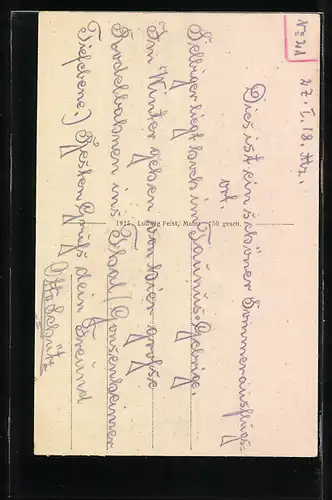 No 21
27. I. 18. Mz.
Dies ist ein schöner Sommerausflugs-
ort.
Selbiger liegt hoch im Taunus-Gebirge.
Im Winter gehen von hier große
Rodelbahnen ins Thal (Gonsenheimer
Tiefebene.) Besten Gruß dein Freund
Otto Schütz
1915 Ludwig Feist, Mainz 750 gesch.